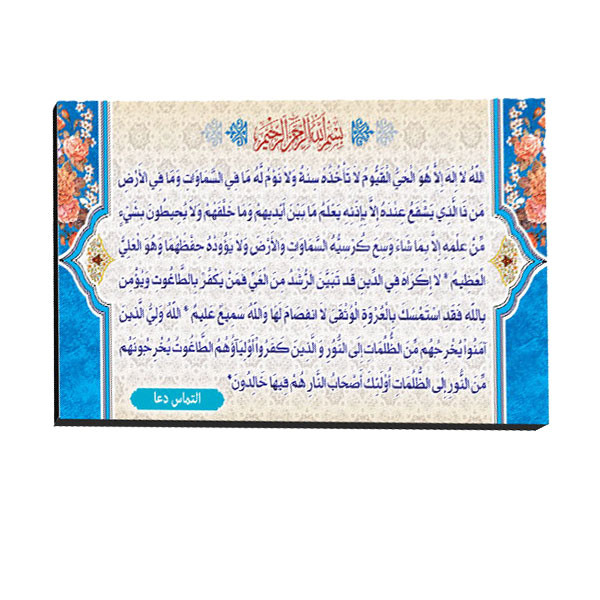 بِسْمِ اللهِ الرَّحْمنِ الرَّحِيمِ
اللّهُ لاَ إِلَهَ إِلاَّ هُوَ الْحَيُّ الْقَيُّومُ لاَ تَأْخُذُهُ سِنَةٌ وَلاَ نَوْمٌ لَّهُ مَا فِي السَّمَاوَاتِ وَمَا فِي الأَرْضِ
مَن ذَا الَّذِي يَشْفَعُ عِنْدَهُ إِلاَّ بِإِذْنِهِ يَعْلَمُ مَا بَيْنَ أَيْدِيهِمْ وَمَا خَلْفَهُمْ وَلاَ يُحِيطُونَ بِشَيْءٍ
مِّنْ عِلْمِهِ إِلاَّ بِمَا شَاء وَسِعَ كُرْسِيُّهُ السَّمَاوَاتِ وَالأَرْضَ وَلاَ يَؤُودُهُ حِفْظُهُمَا وَهُوَ الْعَلِيُّ
الْعَظِيمُ * لاَ إِكْرَاهَ فِي الدِّينِ قَد تَّبَيَّنَ الرُّشْدُ مِنَ الْغَيِّ فَمَنْ يَكْفُرْ بِالطَّاغُوتِ وَيُؤْمِن
بِاللّهِ فَقَدِ اسْتَمْسَكَ بِالْعُرْوَةِ الْوُثْقَىَ لاَ انفِصَامَ لَهَا وَاللّهُ سَمِيعٌ عَلِيمٌ * اللّهُ وَلِيُّ الَّذِينَ
آمَنُواْ يُخْرِجُهُم مِّنَ الظُّلُمَاتِ إِلَى النُّورِ وَالَّذِينَ كَفَرُواْ أَوْلِيَآؤُهُمُ الطَّاغُوتُ يُخْرِجُونَهُم
مِّنَ النُّورِ إِلَى الظُّلُمَاتِ أُوْلَئِكَ أَصْحَابُ النَّارِ هُمْ فِيهَا خَالِدُونَ*
التماس دعا